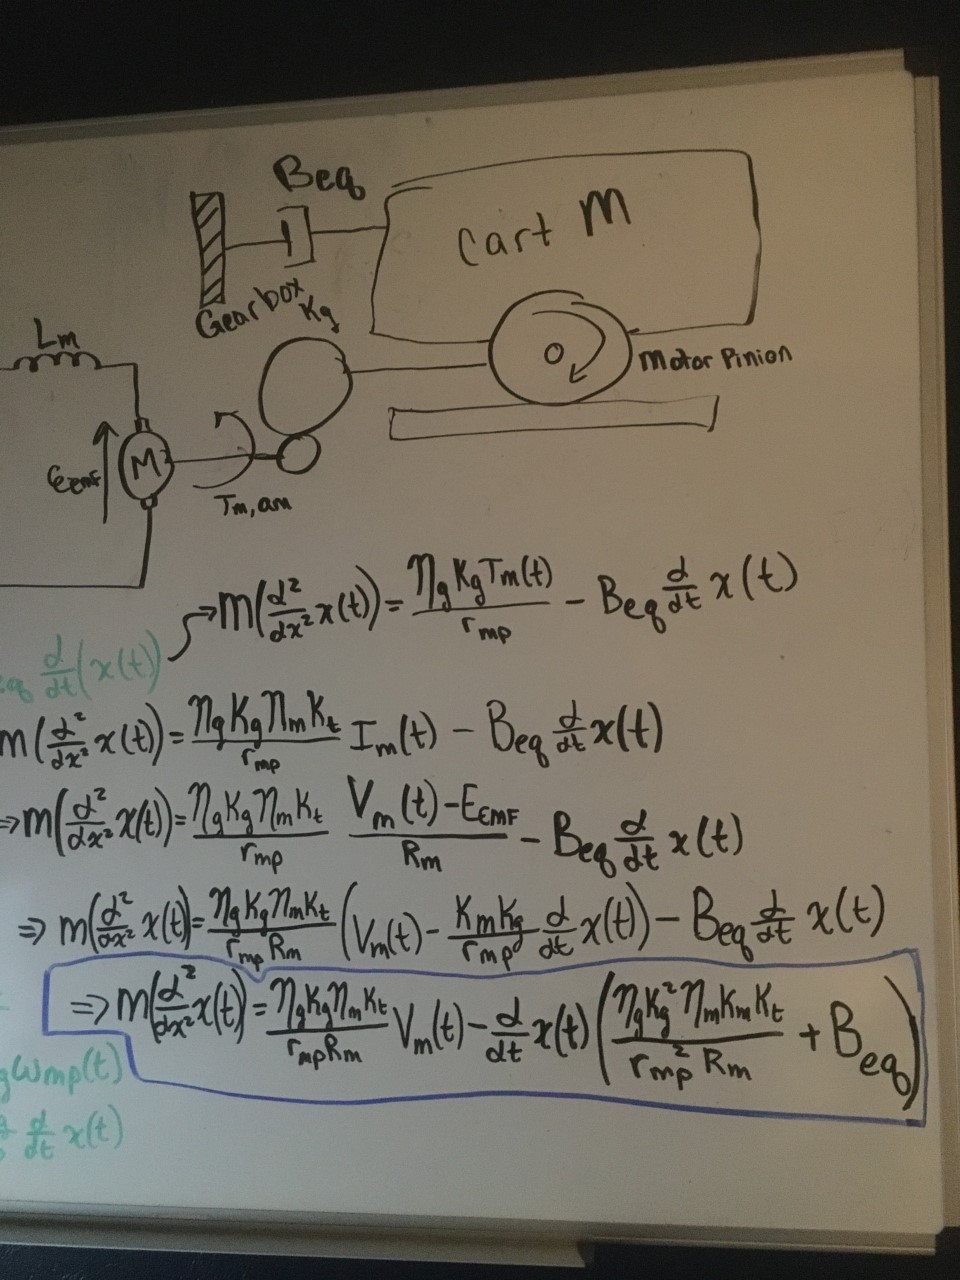 Beq
Cart M
Gearbox
Kg
Lm
Motor Pinion
M
Eemf
Tm, am
⇒ M(d²/dx² x(t)) = ηgKgTm(t)/rmp − Beq d/dt x(t)
eq d/dt(x(t))
M(d²/dx² x(t)) = ηgKgηmKt/rmp Im(t) − Beq d/dt x(t)
⇒ M(d²/dx² x(t)) = ηgKgηmKt/rmp Vm(t)−EEMF/Rm − Beq d/dt x(t)
⇒ M(d²/dx² x(t)) = ηgKgηmKt/rmpRm (Vm(t) − KmKg/rmp d/dt x(t)) − Beq d/dt x(t)
⇒ M(d²/dx² x(t)) = ηgKgηmKt/rmpRm Vm(t) − d/dt x(t) (ηgKg²ηmKmKt/rmp²Rm + Beq)
gωmp(t)
d/dt x(t)